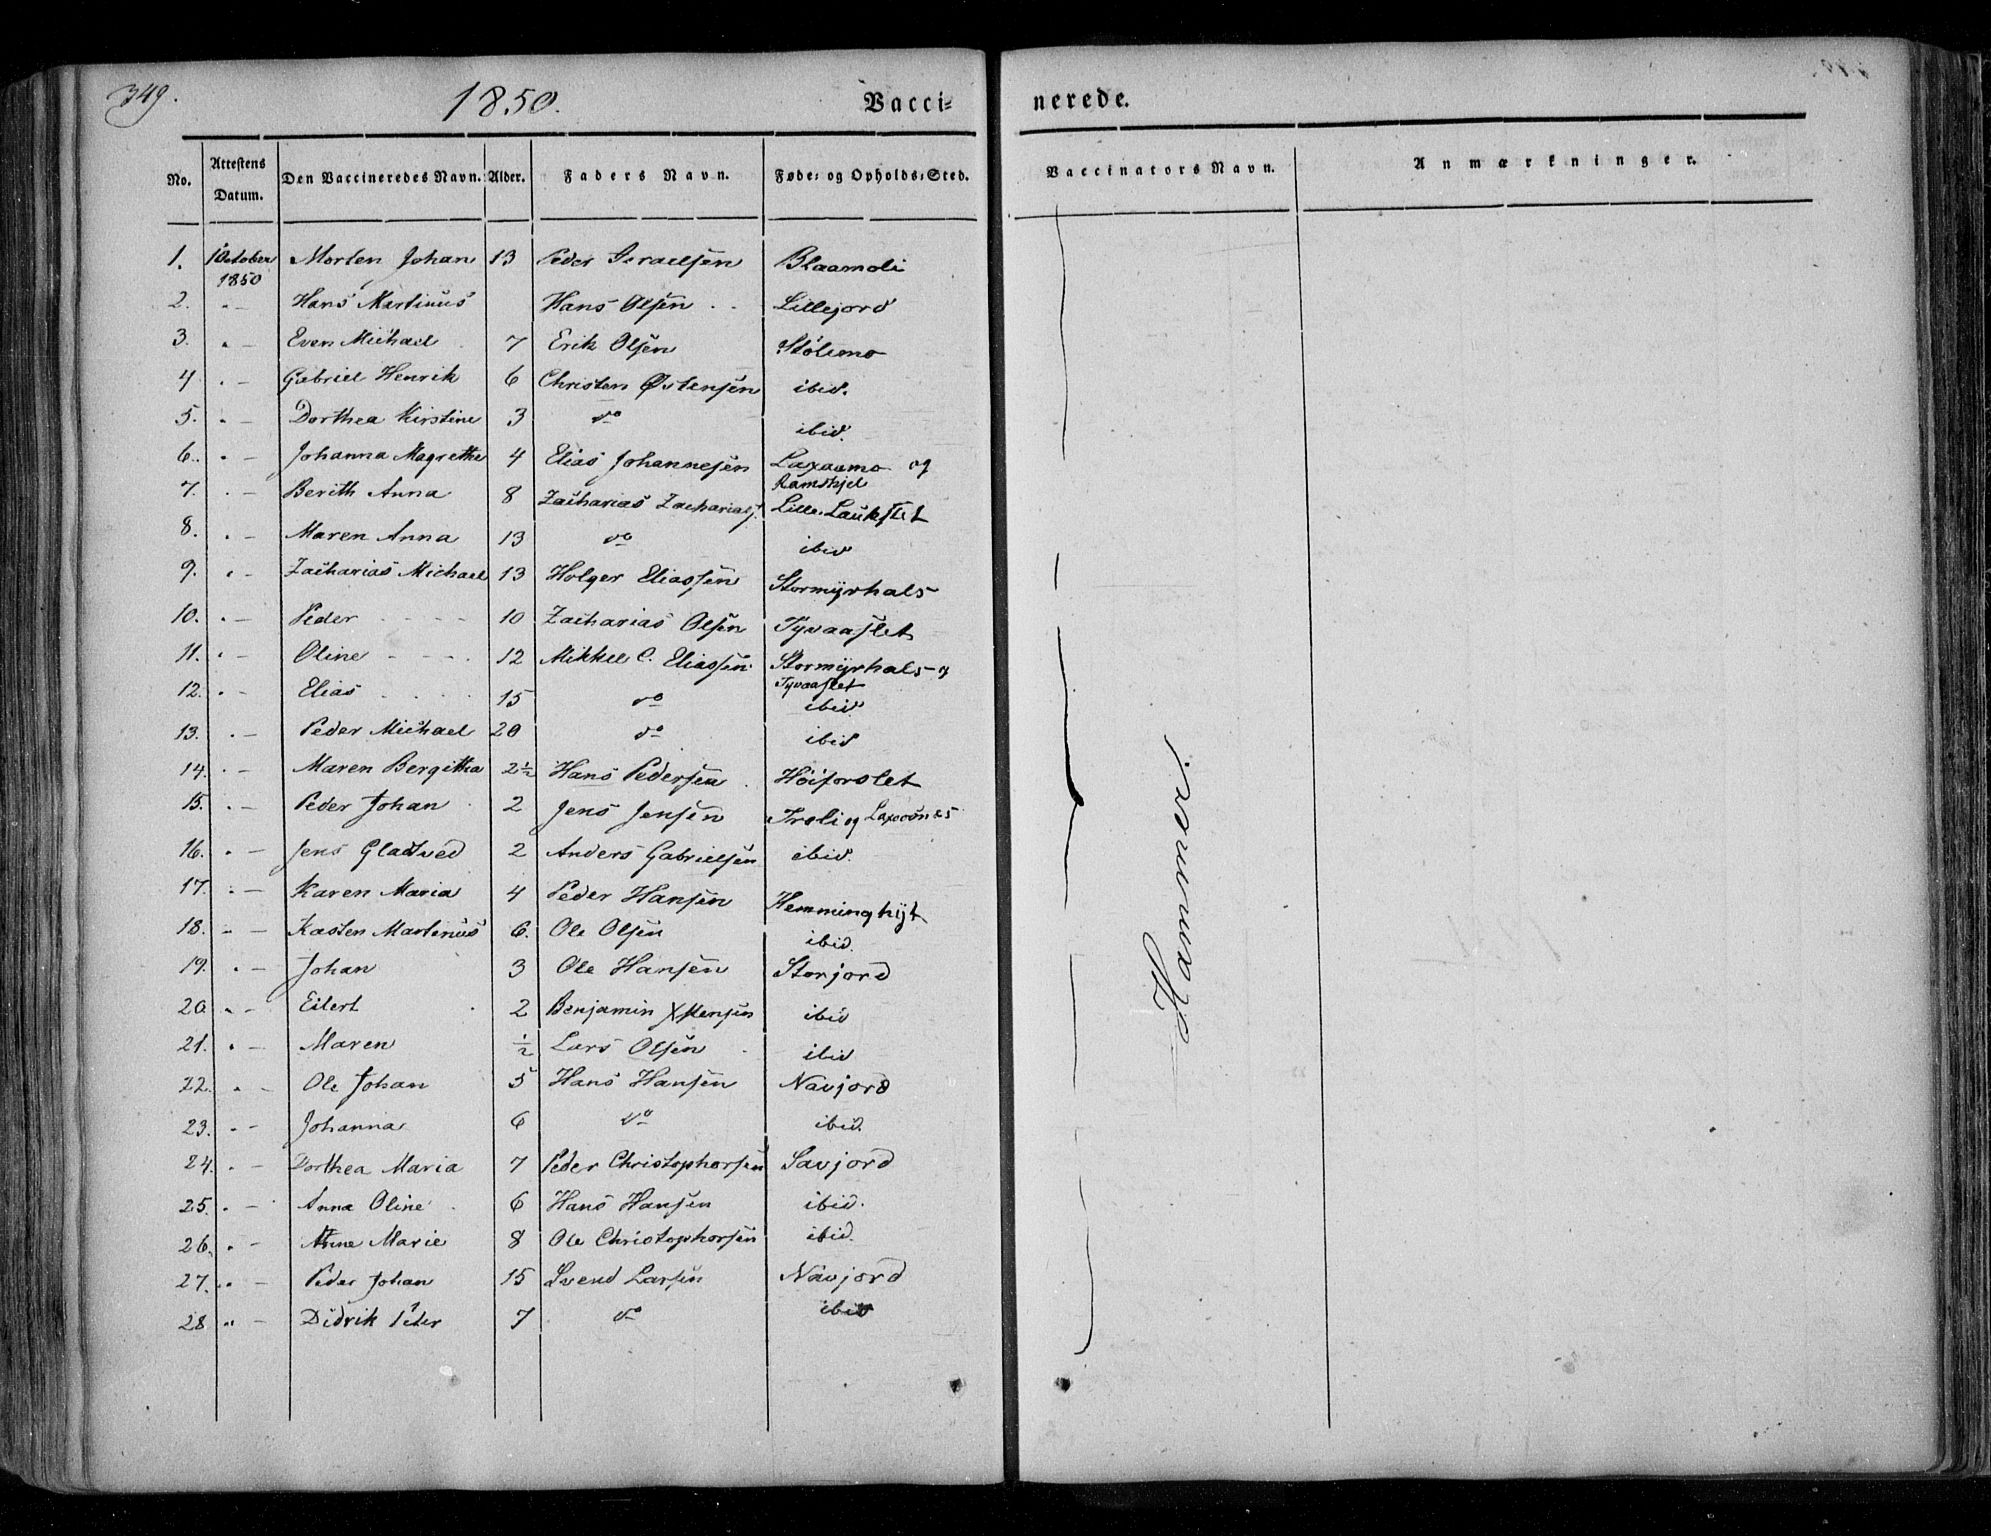 349.
1850.
Vacci-
nerede.
No. Attestens Datum. Den Vaccineredes Navn. Alder. Faders Navn. Føde- og Opholds-Sted.
Vaccinators Navn. Anmærkninger.
1. October 1850 Morten Johan 13 Peder Israelsen Blaamoli
2. " — Hans Martinus Hans Olsen Lillejord
3. " — Even Michael 7 Erik Olsen Stølemo
4 " — Gabriel Henrik 6 Christen Østensen ibid.
5. " — Dorthea Kirstine 3 do ibid.
6. " — Johanna Magrethe 4 Elias Johannesen Laxaamo og
7. " — Berith Anna 8 Zacharias Zachariass. Lille Laukslet
8. " — Maren Anna 13 do ibid
9. " — Zacharias Michael 13 Holger Eliassen Stormÿrhals
10. " — Peder 10 Zacharias Olsen Tyvaaslet
11. " — Oline 12 Mikkel C. Eliassen Stormÿrhals og
Tyvaaslet
12. " — Elias 15 do ibid
13. " — Peder Michael 20 do ibid
14. " — Maren Bergitha 2½ Hans Pedersen Høiforslet
15. " — Peder Johan 2 Jens Jensen Troli og
16. " — Jens Gladved 2 Anders Gabrielsen ibid.
17. " — Karen Maria 4 Peder Hansen Hemminghÿt
18. " — Kasten Martinus 6. Ole Olsen ibid.
19. " — Johan 3 Ole Hansen Storjord
20 " — Eilert 2 Benjamin Xstensen ibid
21. " — Maren ½ Lars Olsen ibid
22. " — Ole Johan 5 Hans Hansen Navjord
23. " — Johanna 6 do ibid.
24. " — Dorthea Maria 7 Peder Christophersen Savjord
25. " — Anna Oline 6 Hans Hansen ibid.
26. " — Anne Marie 8 Ole Christophersen ibid.
27. " — Peder Johan 15 Svend Larsen Navjord
28 " — Didrik Peter 7 do ibid
Hammer.